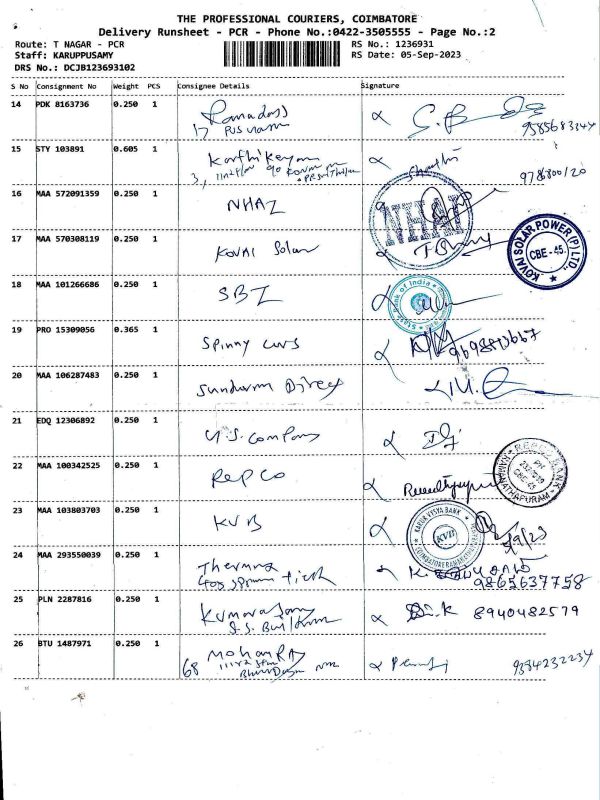 THE PROFESSIONAL COURIERS, COIMBATORE
Delivery Runsheet - PCR - Phone No.:0422-3505555 - Page No.:2
Route: T NAGAR - PCR
RS No.: 1236931
Staff: KARUPPUSAMY
RS Date: 05-Sep-2023
DRS No.: DCJB123693102
S No Consignment No Weight PCS Consignee Details Signature
14 PDK 8163736 0.250 1 Ramadass
17
9585683344
15 STY 103891 0.605 1 Karthikeyan
3,
16 MAA 572091359 0.250 1 NHAI
NHAI
17 MAA 570308119 0.250 1 KOVAI Solar
KOVAI SOLAR POWER (P) LTD.,
CBE - 45
18 MAA 101266686 0.250 1 SBI
State Bank of India
19 PRO 15309056 0.365 1 Spinny cars
20 MAA 106287483 0.250 1 Sundaram Direct
21 EDQ 12306892 0.250 1 U.S. Company
22 MAA 100342525 0.250 1 Repco
REPCO BANK
RAMANATHAPURAM
23 MAA 103803703 0.250 1 KVB
KARUR VYSYA BANK
KVB
5/9/23
24 MAA 293550039 0.250 1
9865637758
25 PLN 2287816 0.250 1 Kumarasamy
8940482579
26 BTU 1487971 0.250 1 MOHANRAJ
68
9384232234